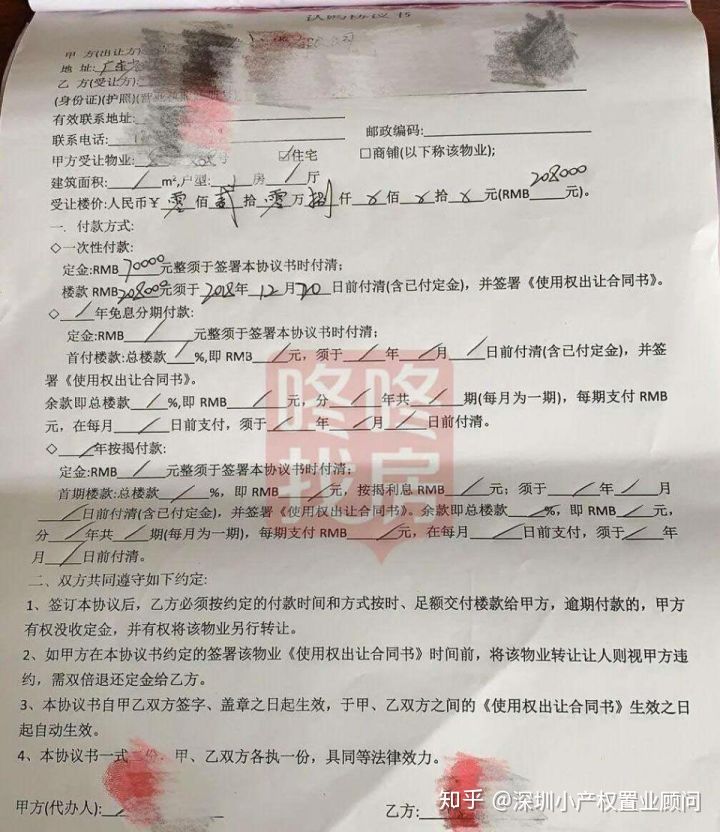 认购协议书
甲 方(出让方)
地 址: 广东
乙 方(受让方)
(身份证)(护照)
有效联系地址:
联系电话: 邮政编码:
甲方受让物业: 号 ☑住宅 □商铺(以下称该物业);
建筑面积: / m²,户型: 1 房 / 厅
受让楼价:人民币¥ 零 佰 贰 拾 零 万 捌 仟 x 佰 x 拾 x 元(RMB 208000 元)。
一. 付款方式:
◇一次性付款:
定金:RMB 70000 元整须于签署本协议书时付清;
楼款 RMB 208000 元须于 2018 年 12 月 20 日前付清(含已付定金), 并签署《使用权出让合同书》。
◇ / 年免息分期付款:
定金:RMB / 元整须于签署本协议书时付清;
首付楼款:总楼款 / %,即 RMB / 元, 须于 / 年 / 月 / 日前付清(含已付定金), 并签
署《使用权出让合同书》。
余款即总楼款 / %,即 RMB / 元, 分 / 年共 / 期(每月为一期), 每期支付 RMB
元, 在每月 / 日前支付, 须于 / 年 / 月 / 日前付清。
◇ / 年按揭付款:
定金:RMB / 元整须于签署本协议书时付清;
首期楼款:总楼款 / %, 即 RMB / 元, 按揭利息 RMB / 元; 须于 / 年 / 月
/ 日前付清(含已付定金), 并签署《使用权出让合同书》。余款即总楼款 / %, 即 RMB / 元,
分 / 年共 / 期(每月为一期), 每期支付 RMB / 元, 在每月 / 日前支付, 须于 / 年
月 / 日前付清。
二、双方共同遵守如下约定:
1、签订本协议后, 乙方必须按约定的付款时间和方式按时、足额交付楼款给甲方, 逾期付款的, 甲方
有权没收定金, 并有权将该物业另行转让。
2、如甲方在本协议书约定的签署该物业《使用权出让合同书》时间前, 将该物业转让让人则视甲方违
约, 需双倍退还定金给乙方。
3、本协议书自甲乙双方签字、盖章之日起生效, 于甲、乙双方之间的《使用权出让合同书》生效之日
起自动生效。
4、本协议书一式二份, 甲、乙双方各执一份, 具同等法律效力。
甲方(代办人): 乙方:
咚咚找房
知乎 @深圳小产权置业顾问